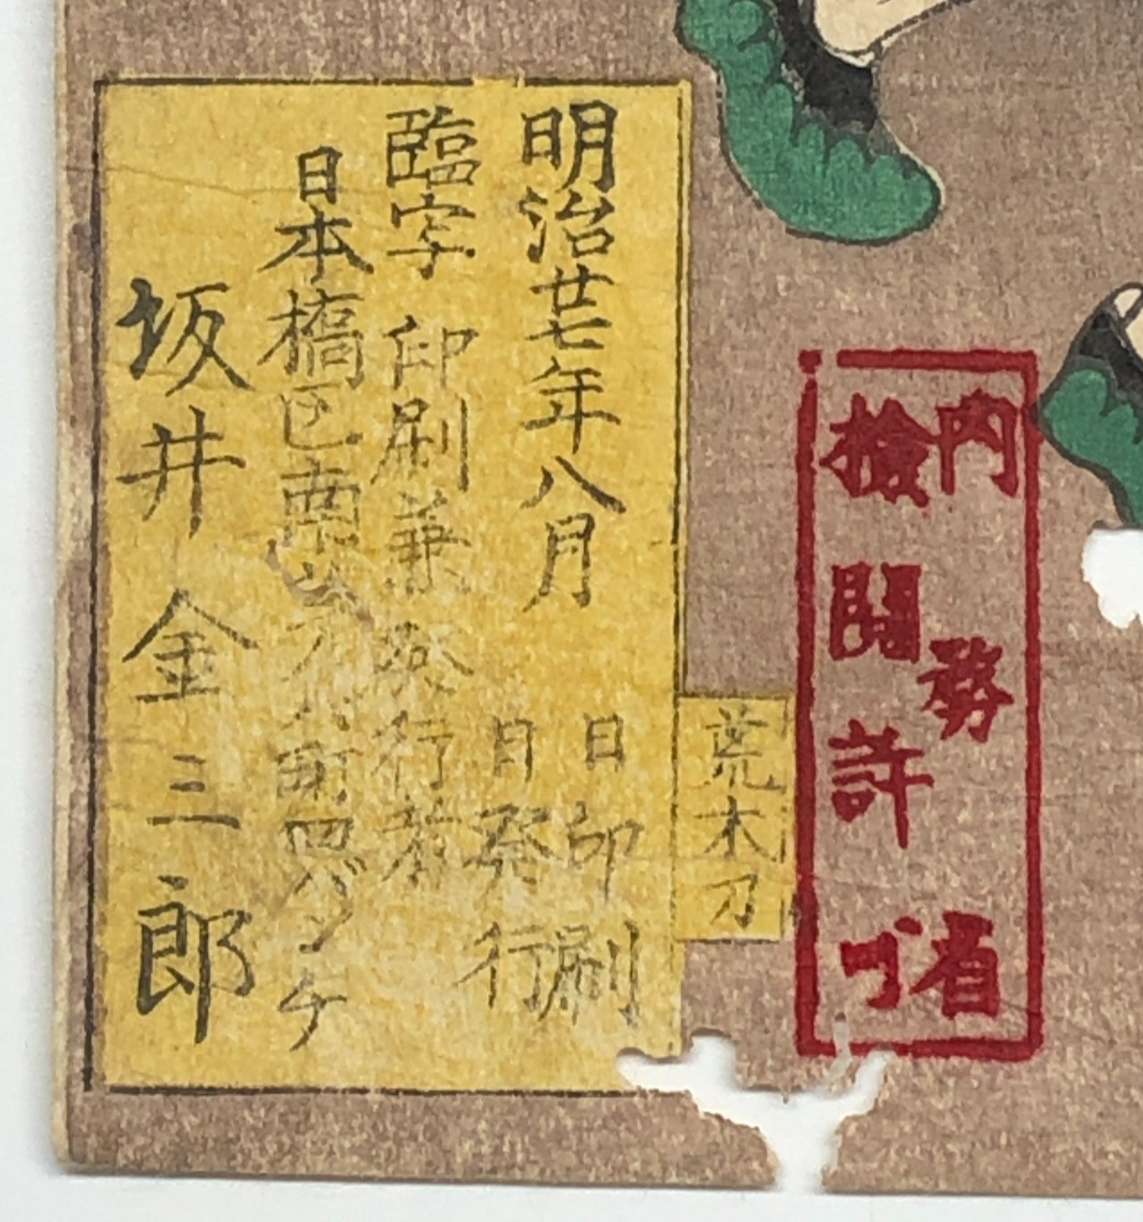 内務省
検閲許可
荒木刀
明治廿七年八月 日印刷
日発行
臨写 印刷兼発行者
日本橋区南 町四バンチ
坂井金三郎